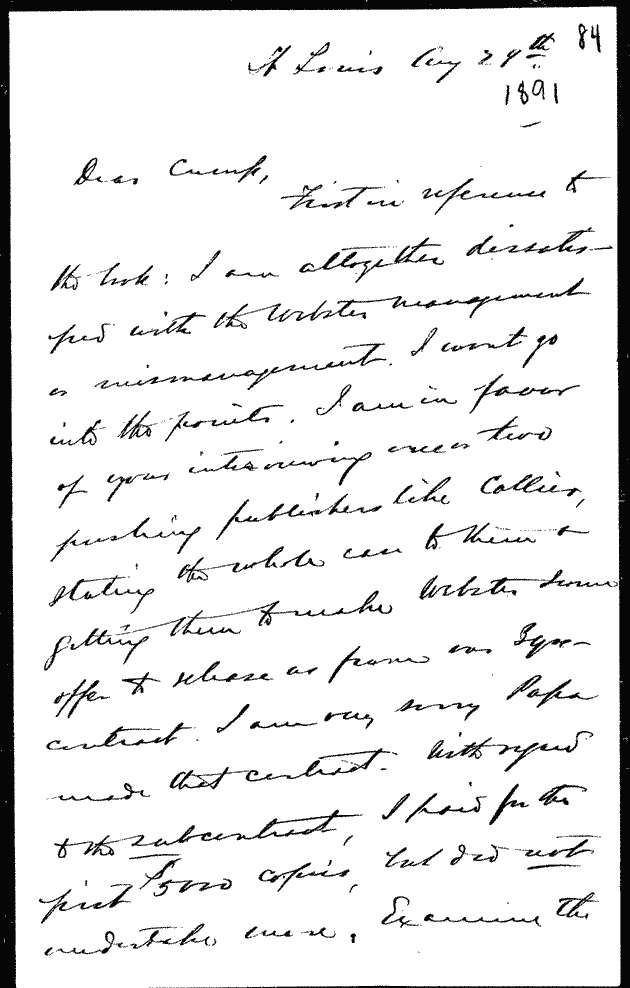 84
St Louis Aug 29th
1891
Dear Cump,
First in reference to
the book: I am altogether dissatis-
fied with the Webster management
or mismanagement. I wont go
into the points. I am in favor
of your interviewing one or two
pushing publishers like Collier,
stating the whole case to them &
getting them to make Webster some
offer to release us from our 3 yr-
contract. I am very sorry Papa
made that contract. With regard
to the subcontract, I paid for the
first 5000 copies, but did not
undertake more. Examine the